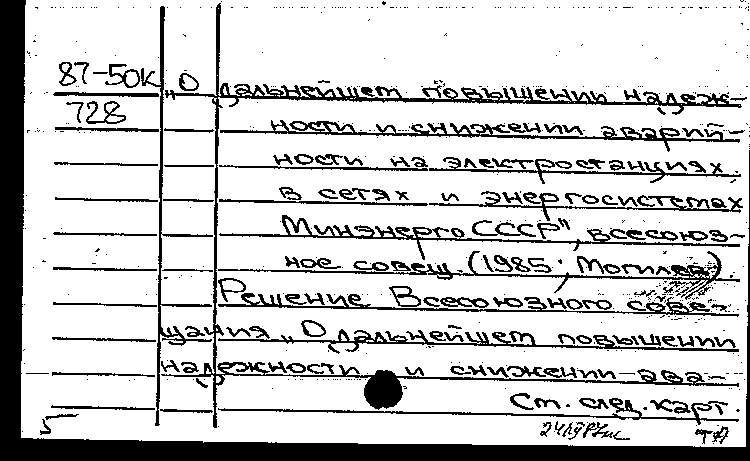 87-50К „О дальнейшем повышении надеж-
728 ности и снижении аварий-
ности на электростанциях,
в сетях и энергосистемах
Минэнерго СССР", всесоюз-
ное совещ. (1985; Могилев).
Решение Всесоюзного сове-
щания „О дальнейшем повышении
надежности и снижении ава-
См. след. карт.
5